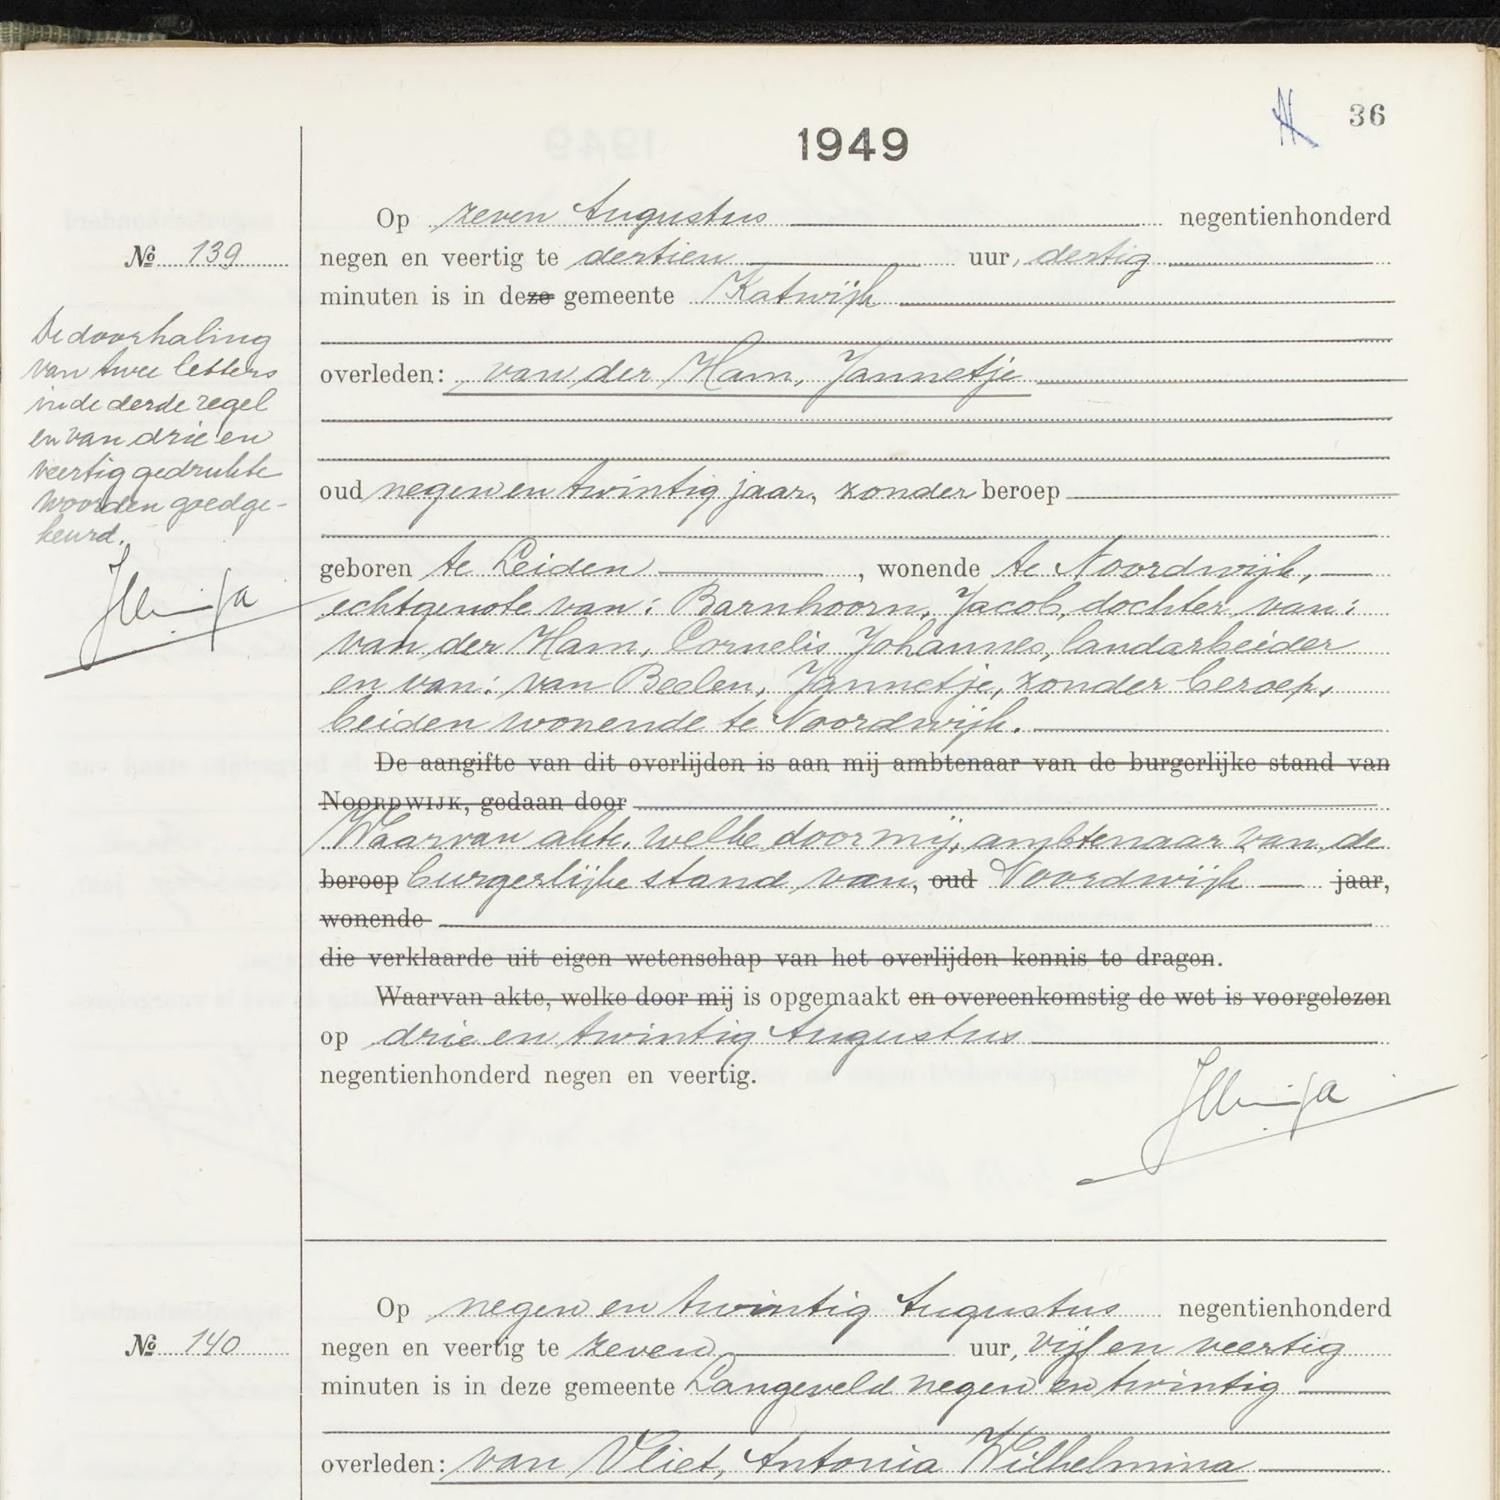 36
1949
Op zeven Augustus negentienhonderd
No 139
negen en veertig te dertien uur, dertig
minuten is in deze gemeente Katwijk
overleden: van der Ham, Jannetje
De doorhaling
van twee letters
in de derde regel
en van drie en
veertig gedrukte
woorden goedge-
keurd.
oud negen en twintig jaar, zonder beroep
geboren te Leiden, wonende te Noordwijk,
echtgenote van: Barnhoorn, Jacob, dochter van:
van der Ham, Cornelis Johannes, landarbeider
en van: van Beelen, Jannetje, zonder beroep,
beiden wonende te Noordwijk.
De aangifte van dit overlijden is aan mij ambtenaar van de burgerlijke stand van
Noordwijk, gedaan door
Waarvan akte, welke door mij, ambtenaar van de
beroep burgerlijke stand van, oud Noordwijk jaar,
wonende
die verklaarde uit eigen wetenschap van het overlijden kennis te dragen.
Waarvan akte, welke door mij is opgemaakt en overeenkomstig de wet is voorgelezen
op drie en twintig Augustus
negentienhonderd negen en veertig.
Op negen en twintig Augustus negentienhonderd
No 140
negen en veertig te zeven uur, vijf en veertig
minuten is in deze gemeente Langeveld negen en twintig
overleden: van Vliet, Antonia Wilhelmina